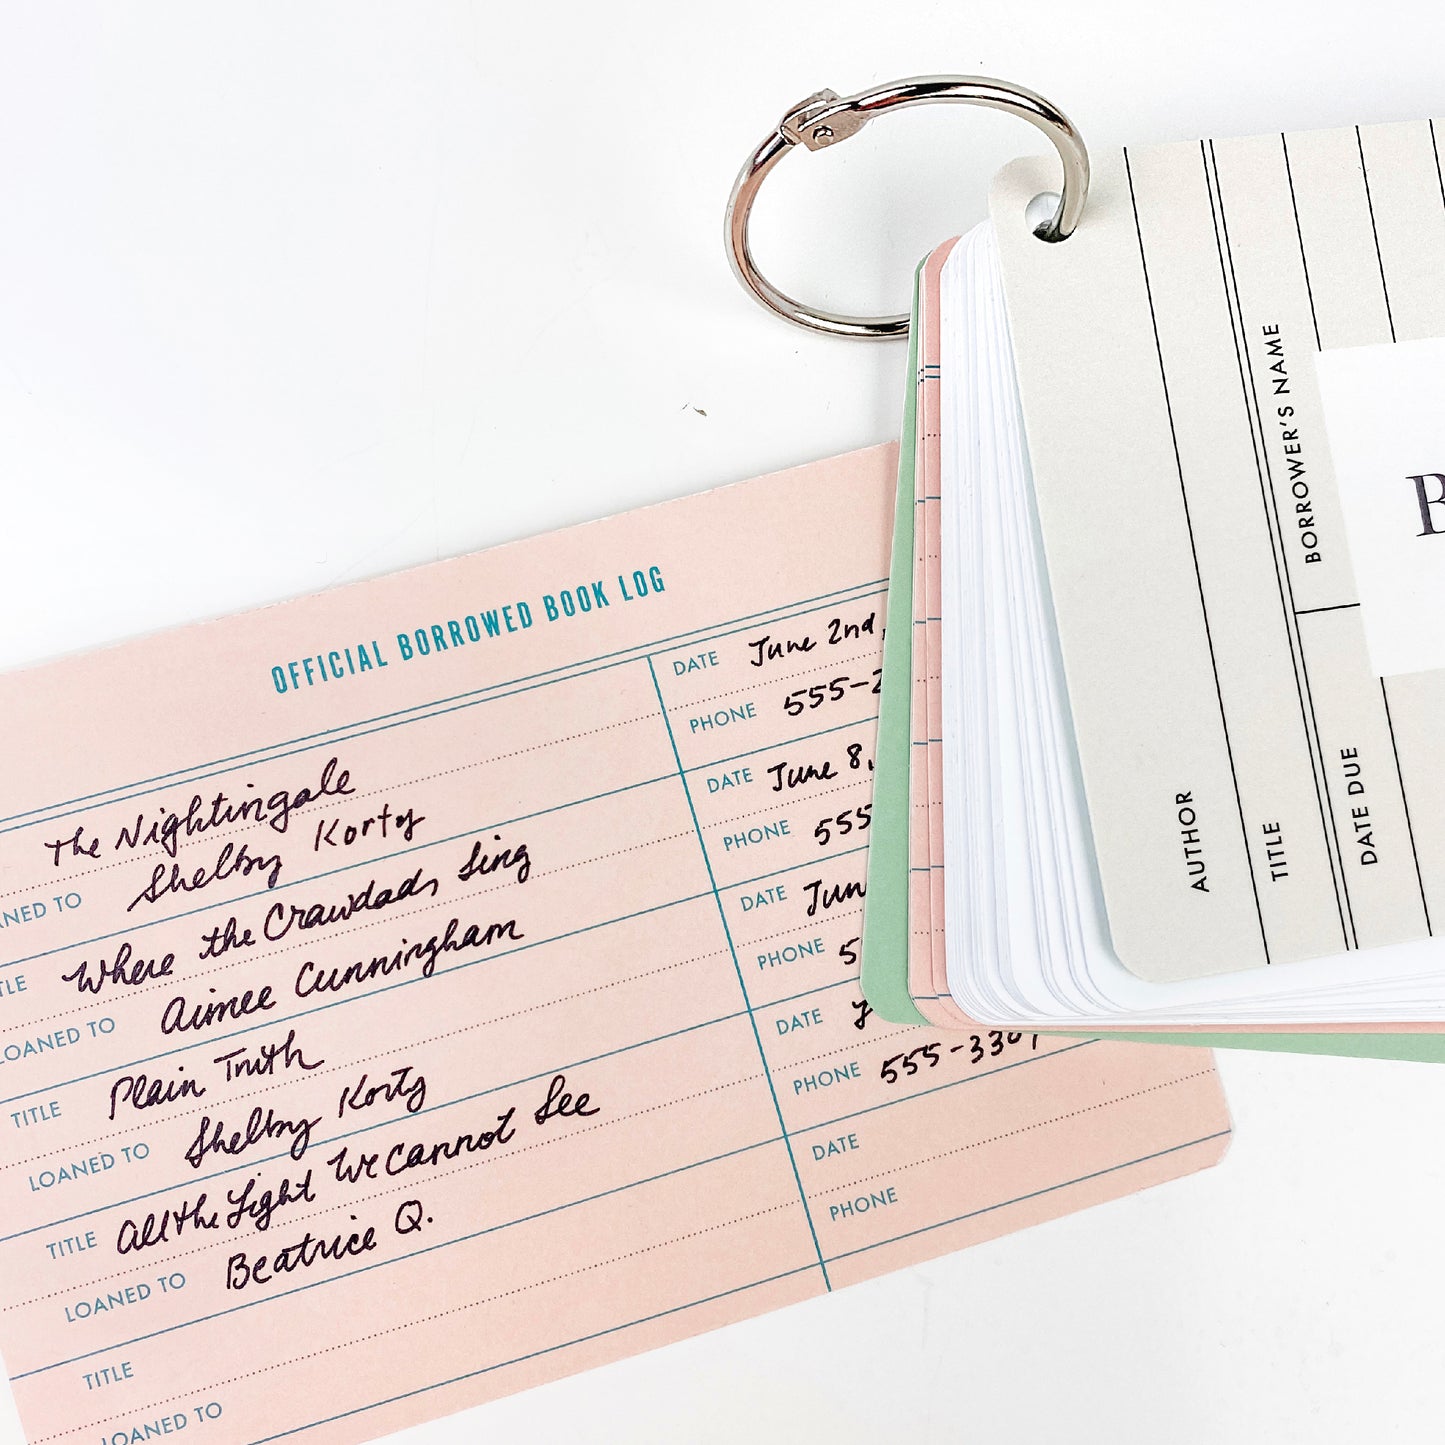 OFFICIAL BORROWED BOOK LOG
The Nightingale
DATE June 2nd,
LOANED TO Shelby Korty
PHONE 555-2
TITLE Where the Crawdads Sing
DATE June 8,
LOANED TO Aimee Cunningham
PHONE 555
TITLE Plain Truth
DATE Jun
LOANED TO Shelby Korty
PHONE 5
TITLE All the Light We Cannot See
DATE
LOANED TO Beatrice Q.
PHONE 555-330
TITLE
DATE
LOANED TO
PHONE
AUTHOR
TITLE
BORROWER'S NAME
DATE DUE
B